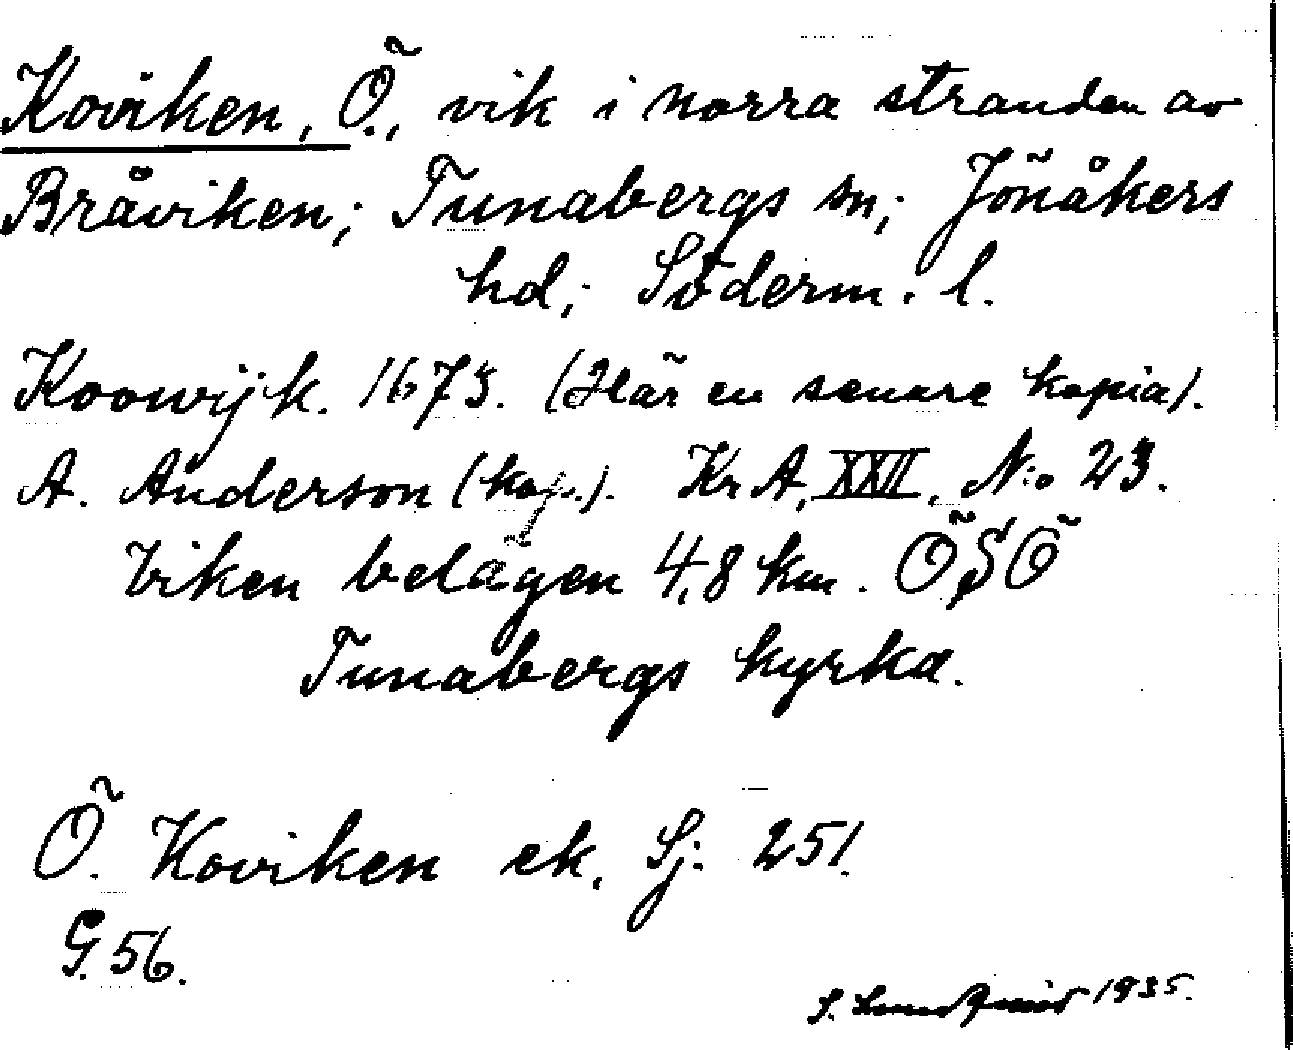 Koviken, Ö., vik i norra stranden av
Bråviken; Tunabergs sn; Jönåkers
hd; Söderm. l.
Koowijk. 1673. (Här en senare kopia).
A. Anderson (kop.). Kr A, XXII, N:o 23.
Viken belägen 4,8 km. ÖSÖ
Tunabergs kyrka.
Ö. Koviken ek. Sj. 251.
G. 56.
S. 1935.